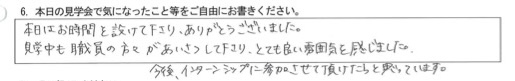 6. 本日の見学会で気になったこと等をご自由にお書きください。
本日はお時間を設けて下さり、ありがとうございました。
見学中も職員の方々があいさつして下さり、とても良い雰囲気を感じました。
今後、インターンシップに参加させて頂けたらと思っています。